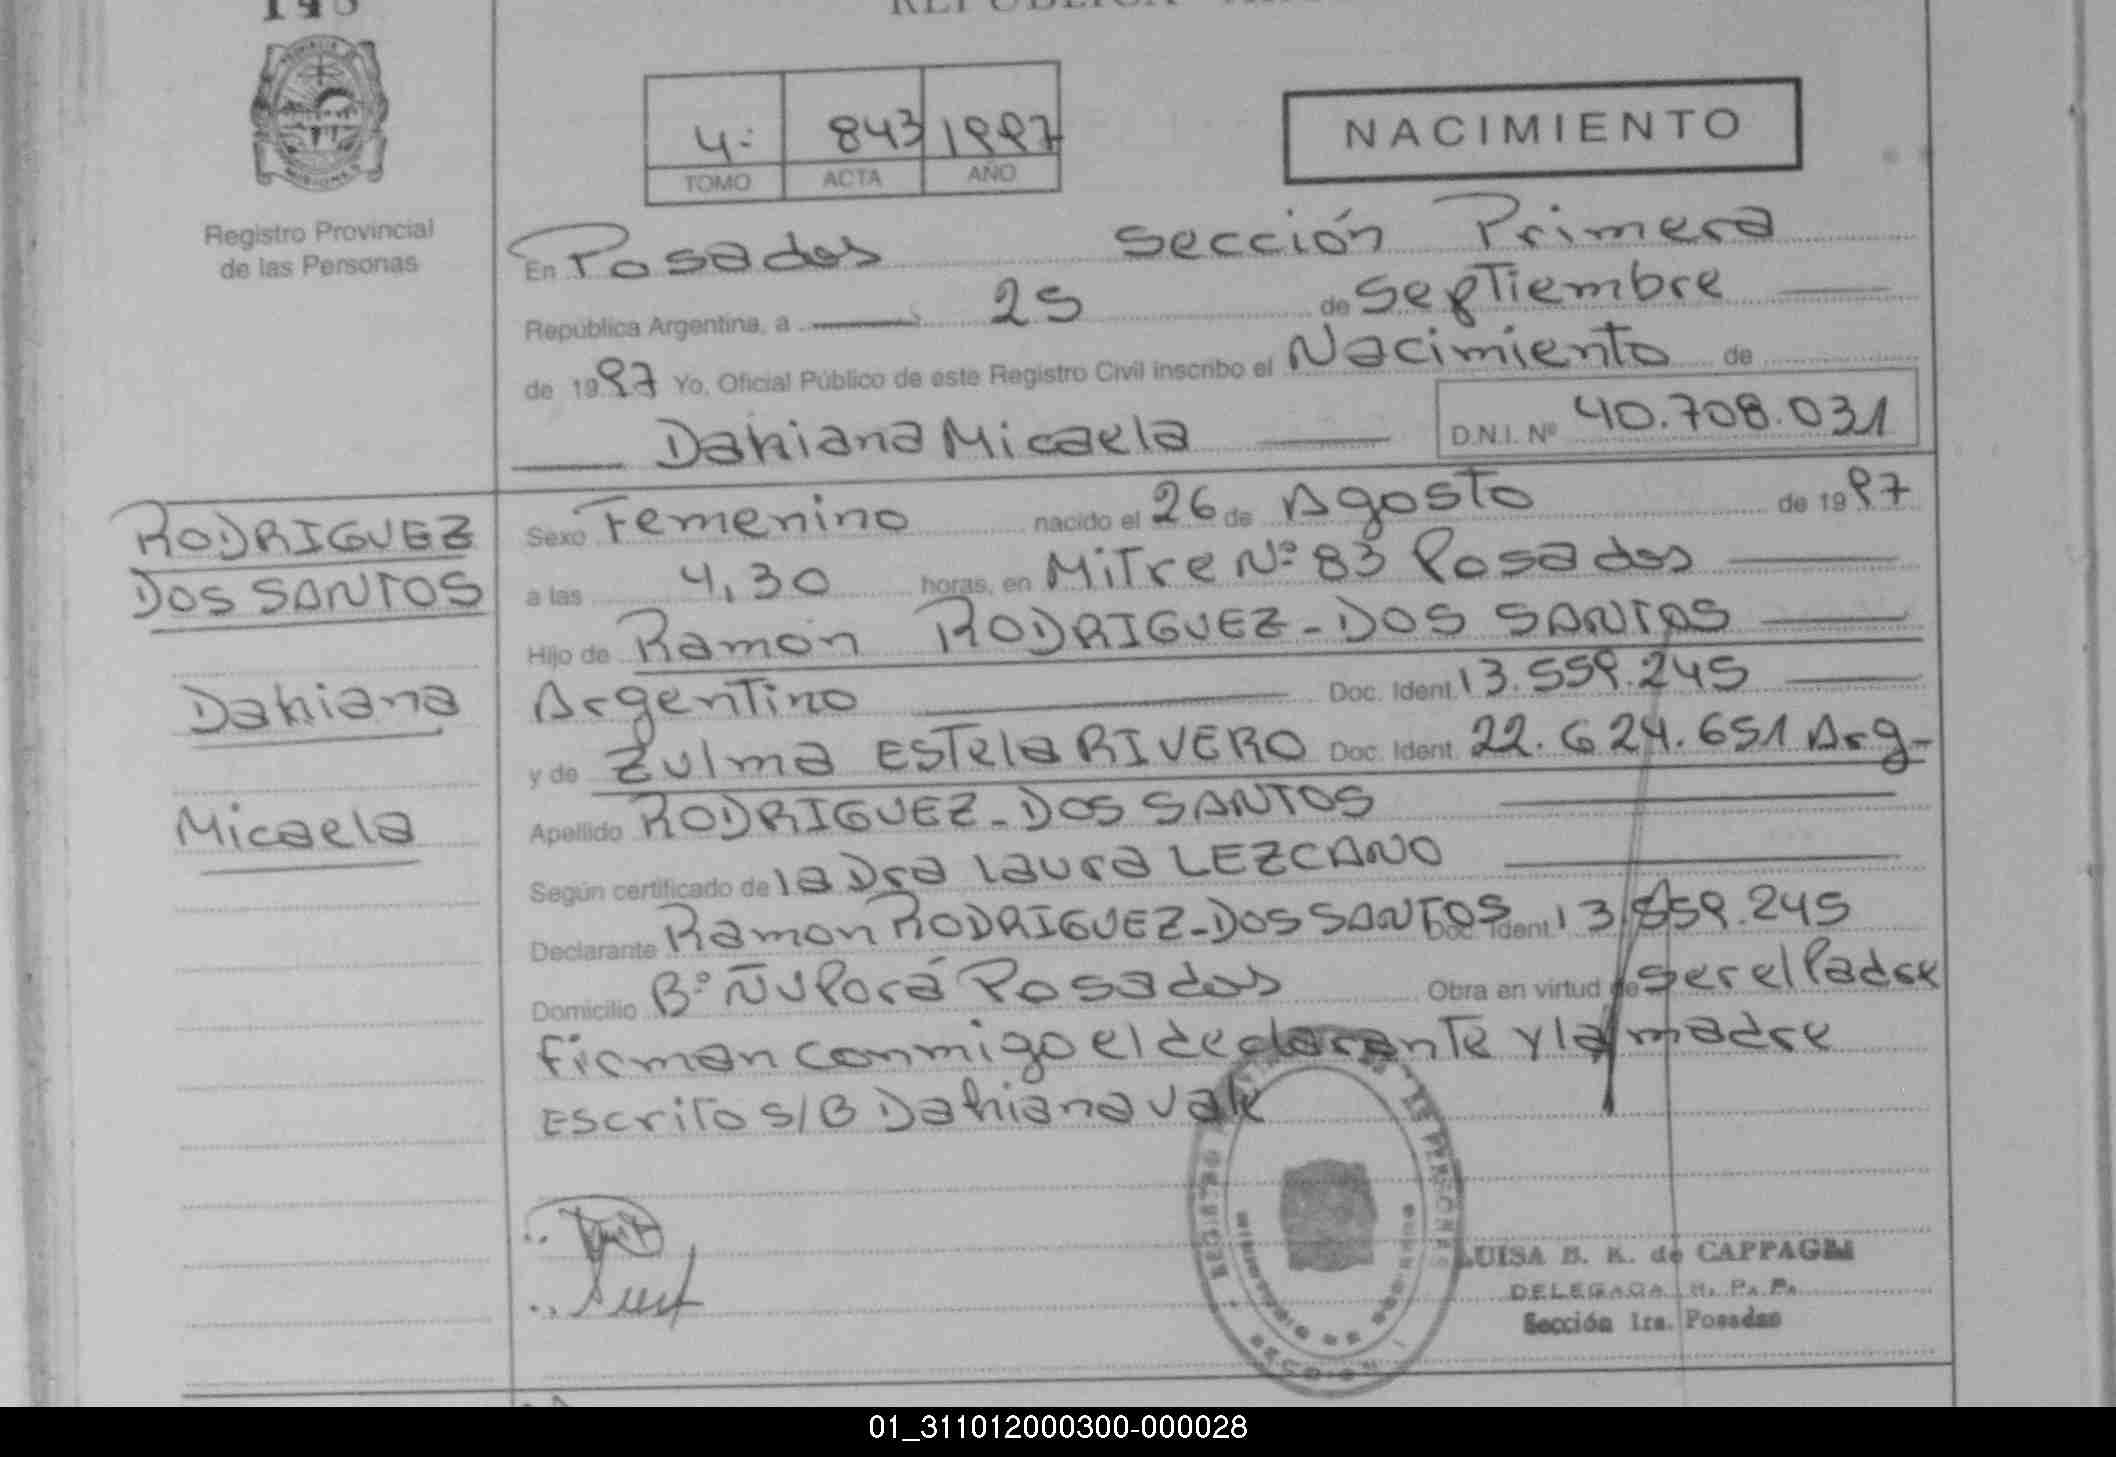 145
REPUBLICA
4º 843 1997
TOMO ACTA AÑO
NACIMIENTO
MISIONES
Registro Provincial
de las Personas
En Posadas Sección Primera
República Argentina, a 25 de Septiembre
de 1997 Yo, Oficial Público de este Registro Civil inscribo el Nacimiento de
Dahiana Micaela D.N.I. Nº 40.708.031
RODRIGUEZ
DOS SANTOS
Dahiana
Micaela
Sexo Femenino nacido el 26 de Agosto de 1997
a las 4,30 horas, en Mitre Nº 83 Posadas
Hijo de Ramón RODRIGUEZ-DOS SANTOS
Argentino Doc. Ident. 13.559.245
y de Zulma EStela RIVERO Doc. Ident. 22.624.651 Arg-
Apellido RODRIGUEZ-DOS SANTOS
Según certificado de la Dra Laura LEZCANO
Declarante Ramon RODRIGUEZ-DOS SANTOS Doc. Ident. 13.559.245
Domicilio Bº Ñu Porá Posadas Obra en virtud de ser el Padre
firman conmigo el declarante y la madre
Escrito S/B Dahiana vale
REGISTRO PERSONAS
MINISTERIO DE GOBIERNO
SECCION
LUISA B. K. de CAPPAGLI
DELEGADA R. P. P.
Sección 1ra. Posadas
01_311012000300-000028